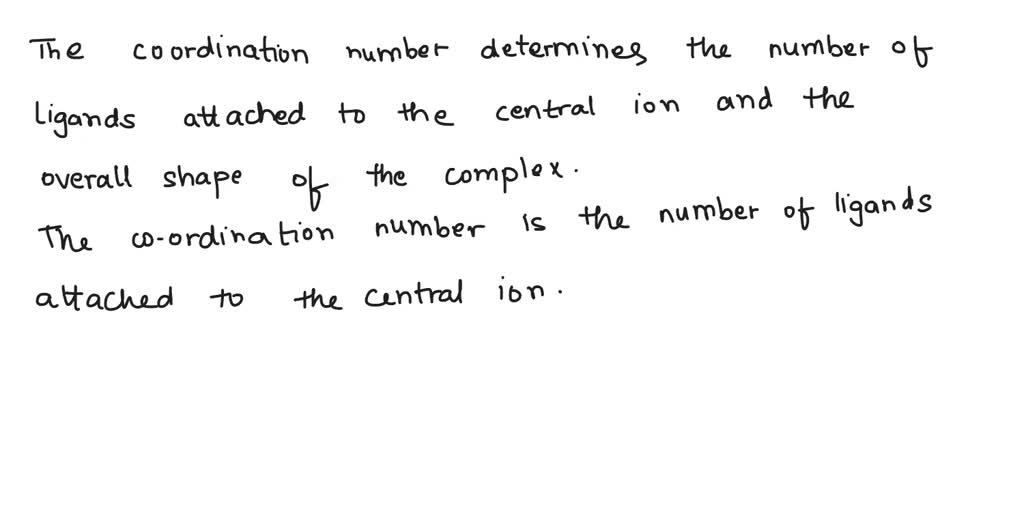 The coordination number determines the number of
ligands attached to the central ion and the
overall shape of the complex.
The co-ordination number is the number of ligands
attached to the central ion.